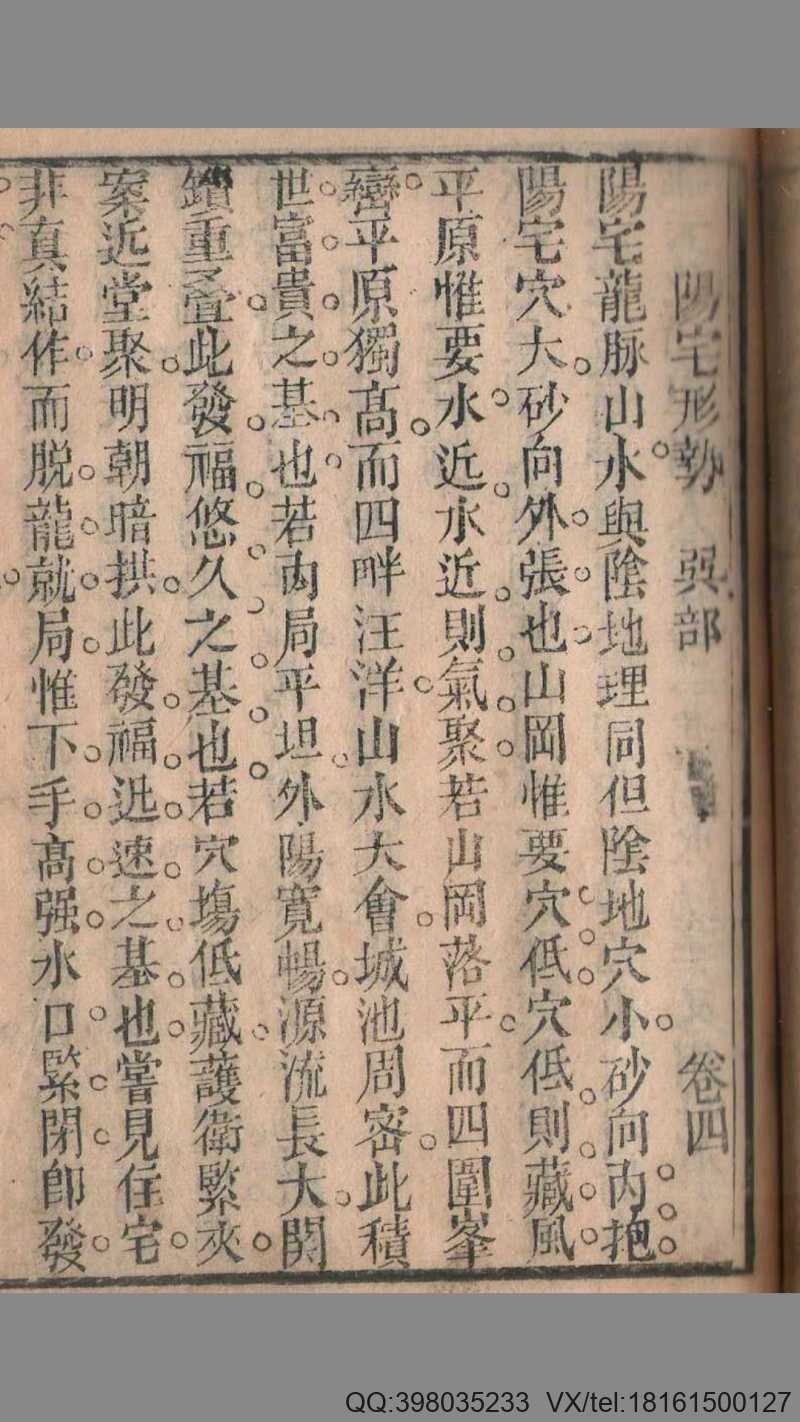 陽宅形勢 巽部 卷四
陽宅龍脉山水與陰地理同但陰地穴小砂向內抱
陽宅穴大砂向外張也山岡惟要穴低穴低則藏風
平原惟要水近水近則氣聚若山岡落平而四圍峯
巒平原獨髙而四畔汪洋山水大會城池周密此積
世富貴之基也若內局平坦外陽寬暢源流長大関
鎖重疊此發福悠久之基也若穴塲低藏護衛緊夾
案近堂聚明朝暗拱此發福迅速之基也嘗見住宅
非真結作而脱龍就局惟下手髙强水口緊閉卽發
QQ:398035233 VX/tel:18161500127